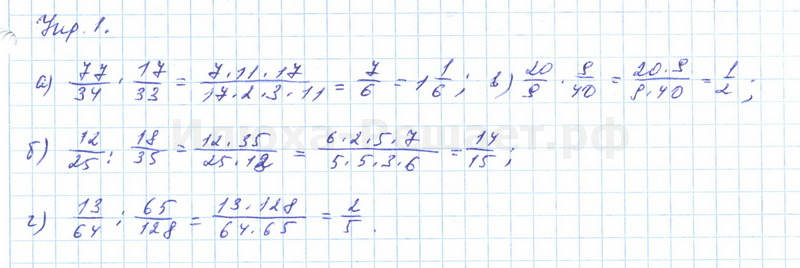 Упр. 1.
а) 77/34 · 17/33 = 7·11·17/17·2·3·11 = 7/6 = 1 1/6; в) 20/9 · 9/40 = 20·9/9·40 = 1/2;
б) 12/25 : 18/35 = 12·35/25·18 = 6·2·5·7/5·5·3·6 = 14/15;
г) 13/64 : 65/128 = 13·128/64·65 = 2/5.
Илюха-Решает.рф